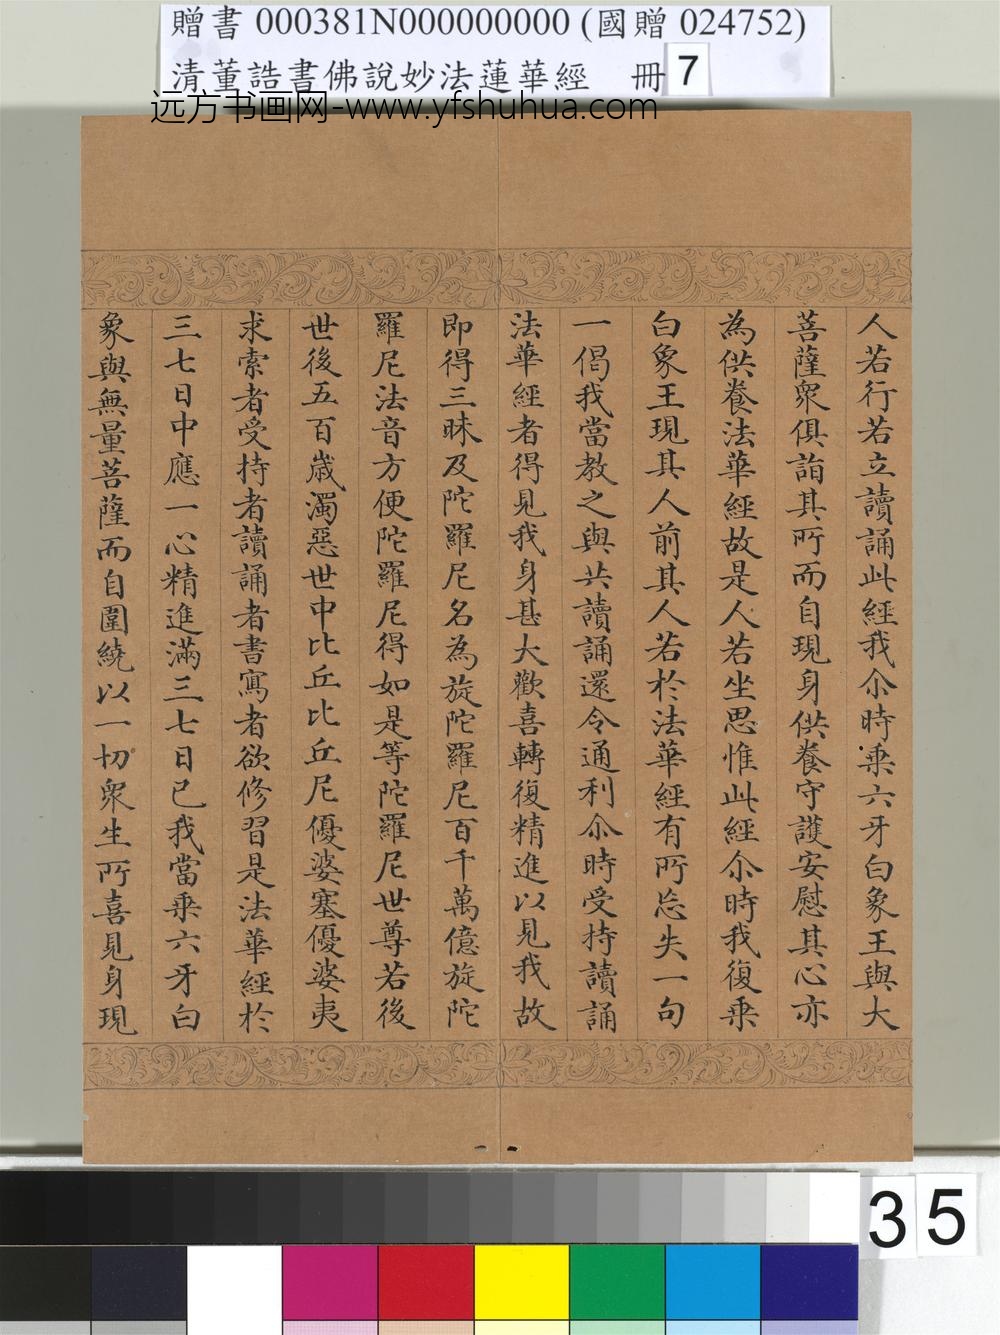 贈書 000381N000000000 (國贈 024752)
清董誥書佛說妙法蓮華經 冊 7
远方书画网-www.yfshuhua.com
人若行若立讀誦此經我尒時乗六牙白象王與大
菩薩衆俱詣其所而自現身供養守護安慰其心亦
為供養法華經故是人若坐思惟此經尒時我復乗
白象王現其人前其人若扵法華經有所忘失一句
一偈我當教之與共讀誦還令通利尒時受持讀誦
法華經者得見我身甚大歡喜轉復精進以見我故
即得三昧及陀羅尼名為旋陀羅尼百千萬億旋陀
羅尼法音方便陀羅尼得如是等陀羅尼世尊若後
世後五百歲濁惡世中比丘比丘尼優婆塞優婆夷
求索者受持者讀誦者書寫者欲修習是法華經扵
三七日中應一心精進滿三七日已我當乗六牙白
象與無量菩薩而自圍繞以一切衆生所喜見身現
35